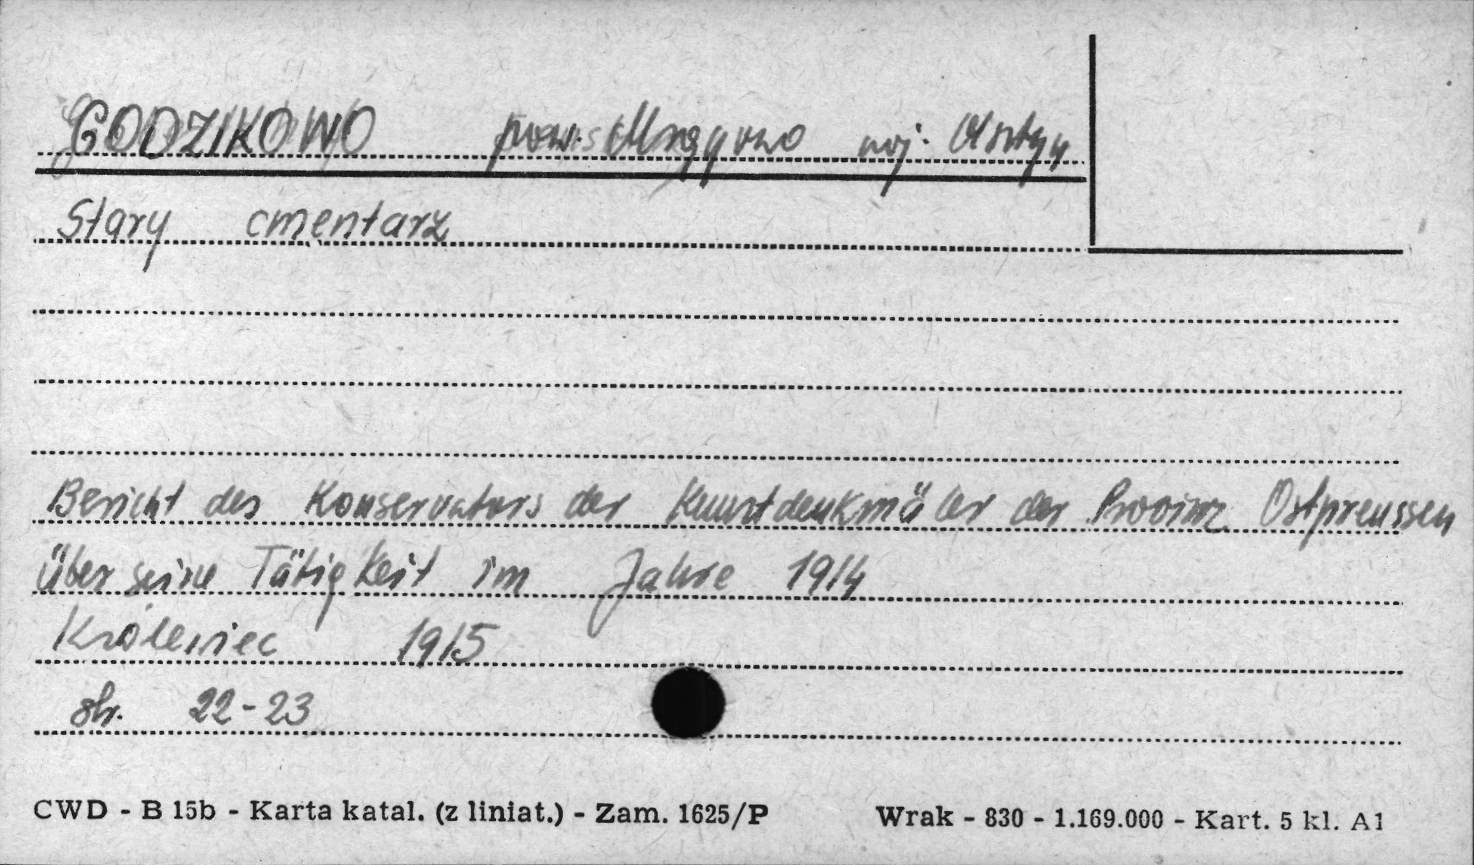 GODZIKOWO pow. Mrągowo woj. Olsztyn
Stary cmentarz
Bericht des Konservators der Kunstdenkmäler der Provinz Ostpreussen
über seine Tätigkeit im Jahre 1914
Królewiec 1915
str. 22-23
CWD - B 15b - Karta katal. (z liniat.) - Zam. 1625/P Wrak - 830 - 1.169.000 - Kart. 5 kl. A1